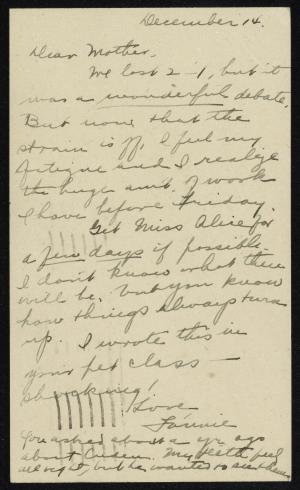 December 14.
Dear Mother,
We lost 2-1, but it
was a wonderful debate.
But now that the
strain is off, I feel my
fatigue and I realize
the huge amt. of work
I have before Friday.
Get Miss Alice for
a few days if possible.
I don't know what there
will be, but you know
how things always turn
up. I wrote this in
your pet class —
shocking!
Love
Fannie
You asked about a yr. ago
about My teeth feel
all right, but he wanted to see them